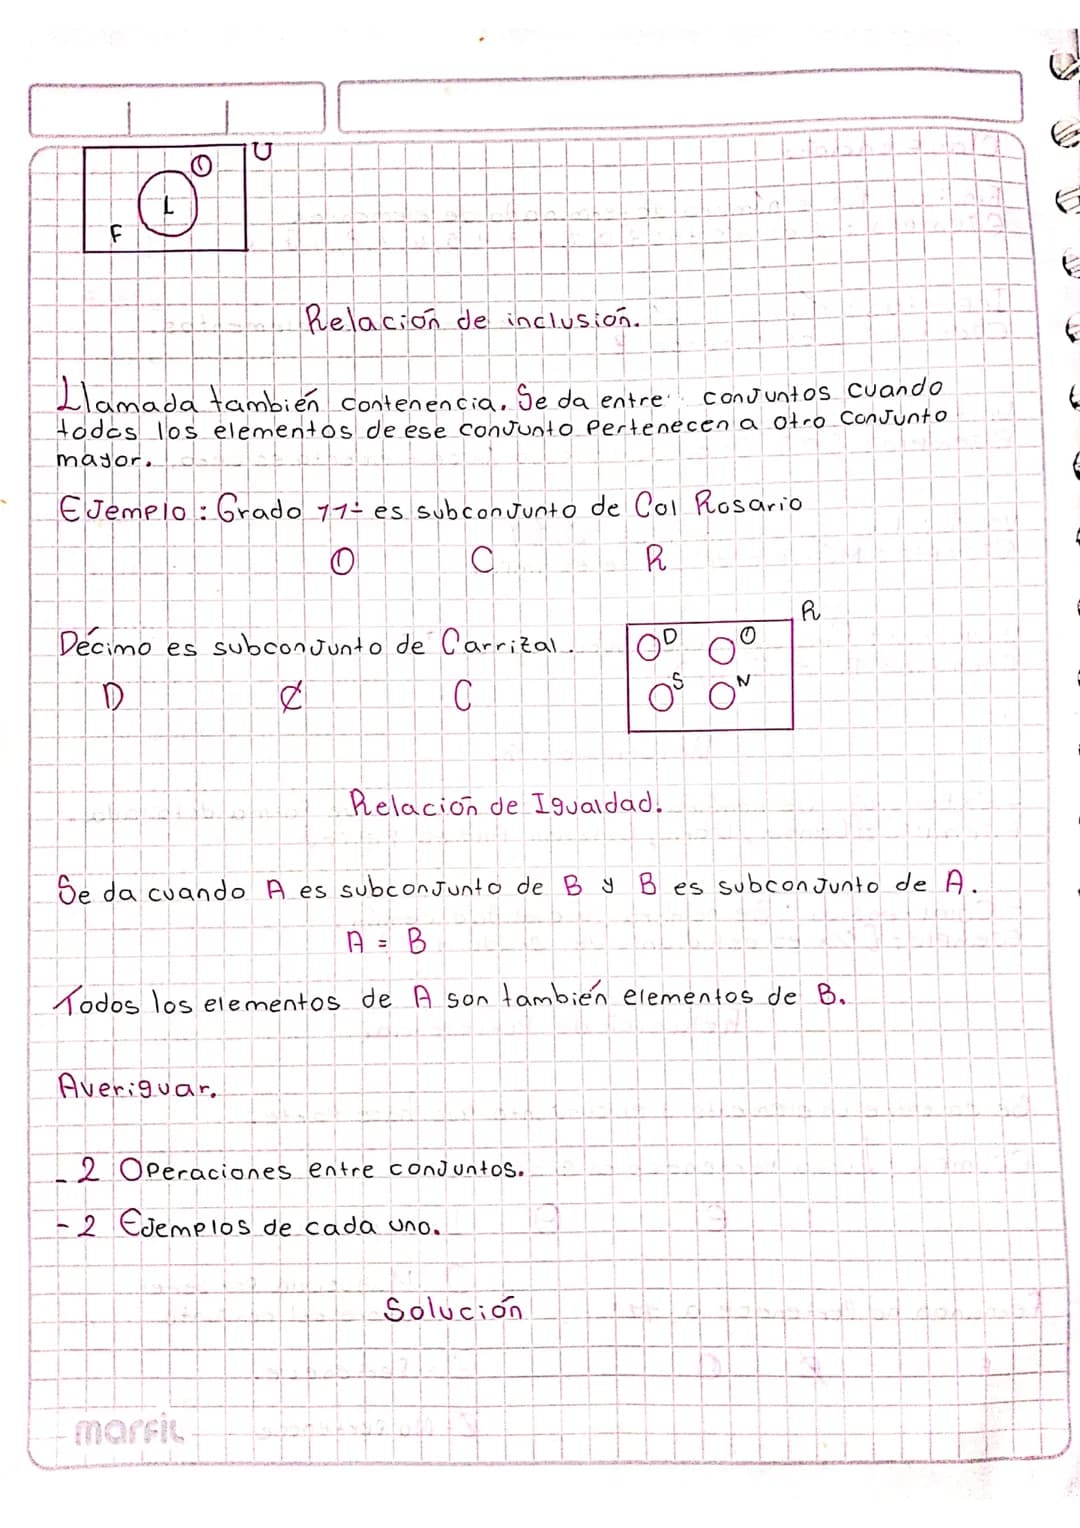 U
O
L
F
Relación de inclusión.
Llamada también contenencia. Se da entre conjuntos cuando
todos los elementos de ese conjunto pertenecen a otro conjunto
mayor.
Ejemplo: Grado 11° es subconjunto de Col Rosario
O C R
Décimo es subconjunto de Carrizal.
D ⊄ C
R
D O
S N
Relación de Igualdad.
Se da cuando A es subconjunto de B y B es subconjunto de A.
A = B
Todos los elementos de A son también elementos de B.
Averiguar.
- 2 Operaciones entre conjuntos.
- 2 Ejemplos de cada uno.
Solución
marfil